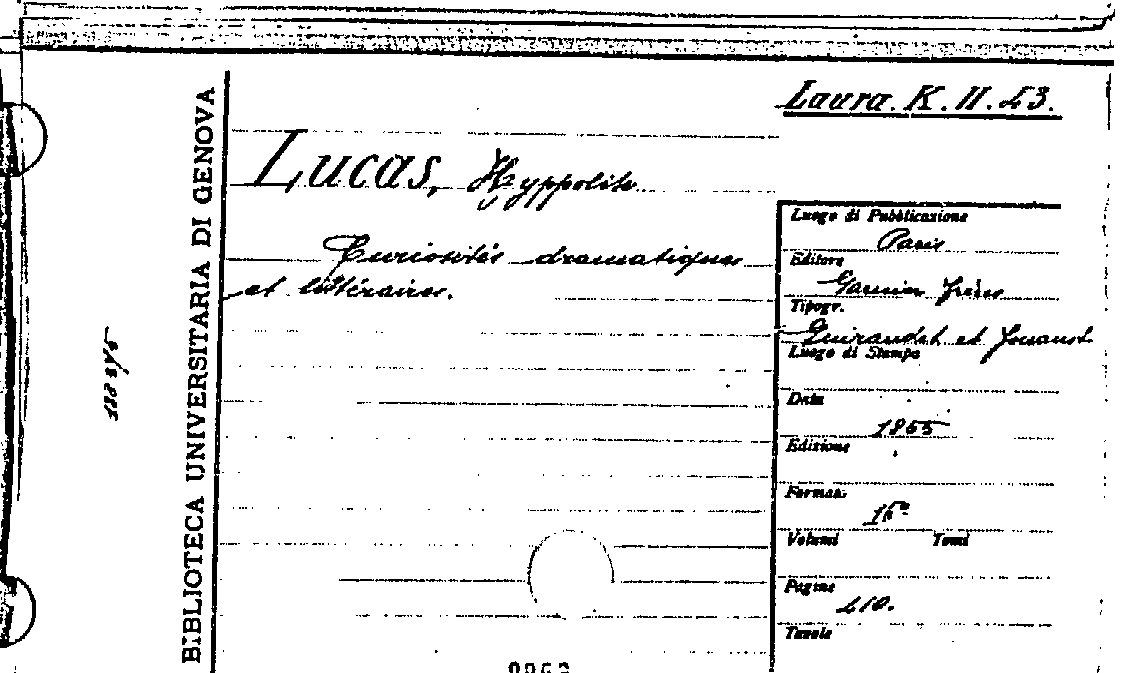 Laura. K. II. 43.
BIBLIOTECA UNIVERSITARIA DI GENOVA
Lucas, Hyppolite
Curiosités dramatiques
et littéraires.
Luogo di Pubblicazione
Paris
Editore
Garnier frères
Tipogr.
Guiraudet et Jouaust
Luogo di Stampa
Data
1855
Edizione
Formato
16º
Volumi Tomi
Pagine
410.
Tavole